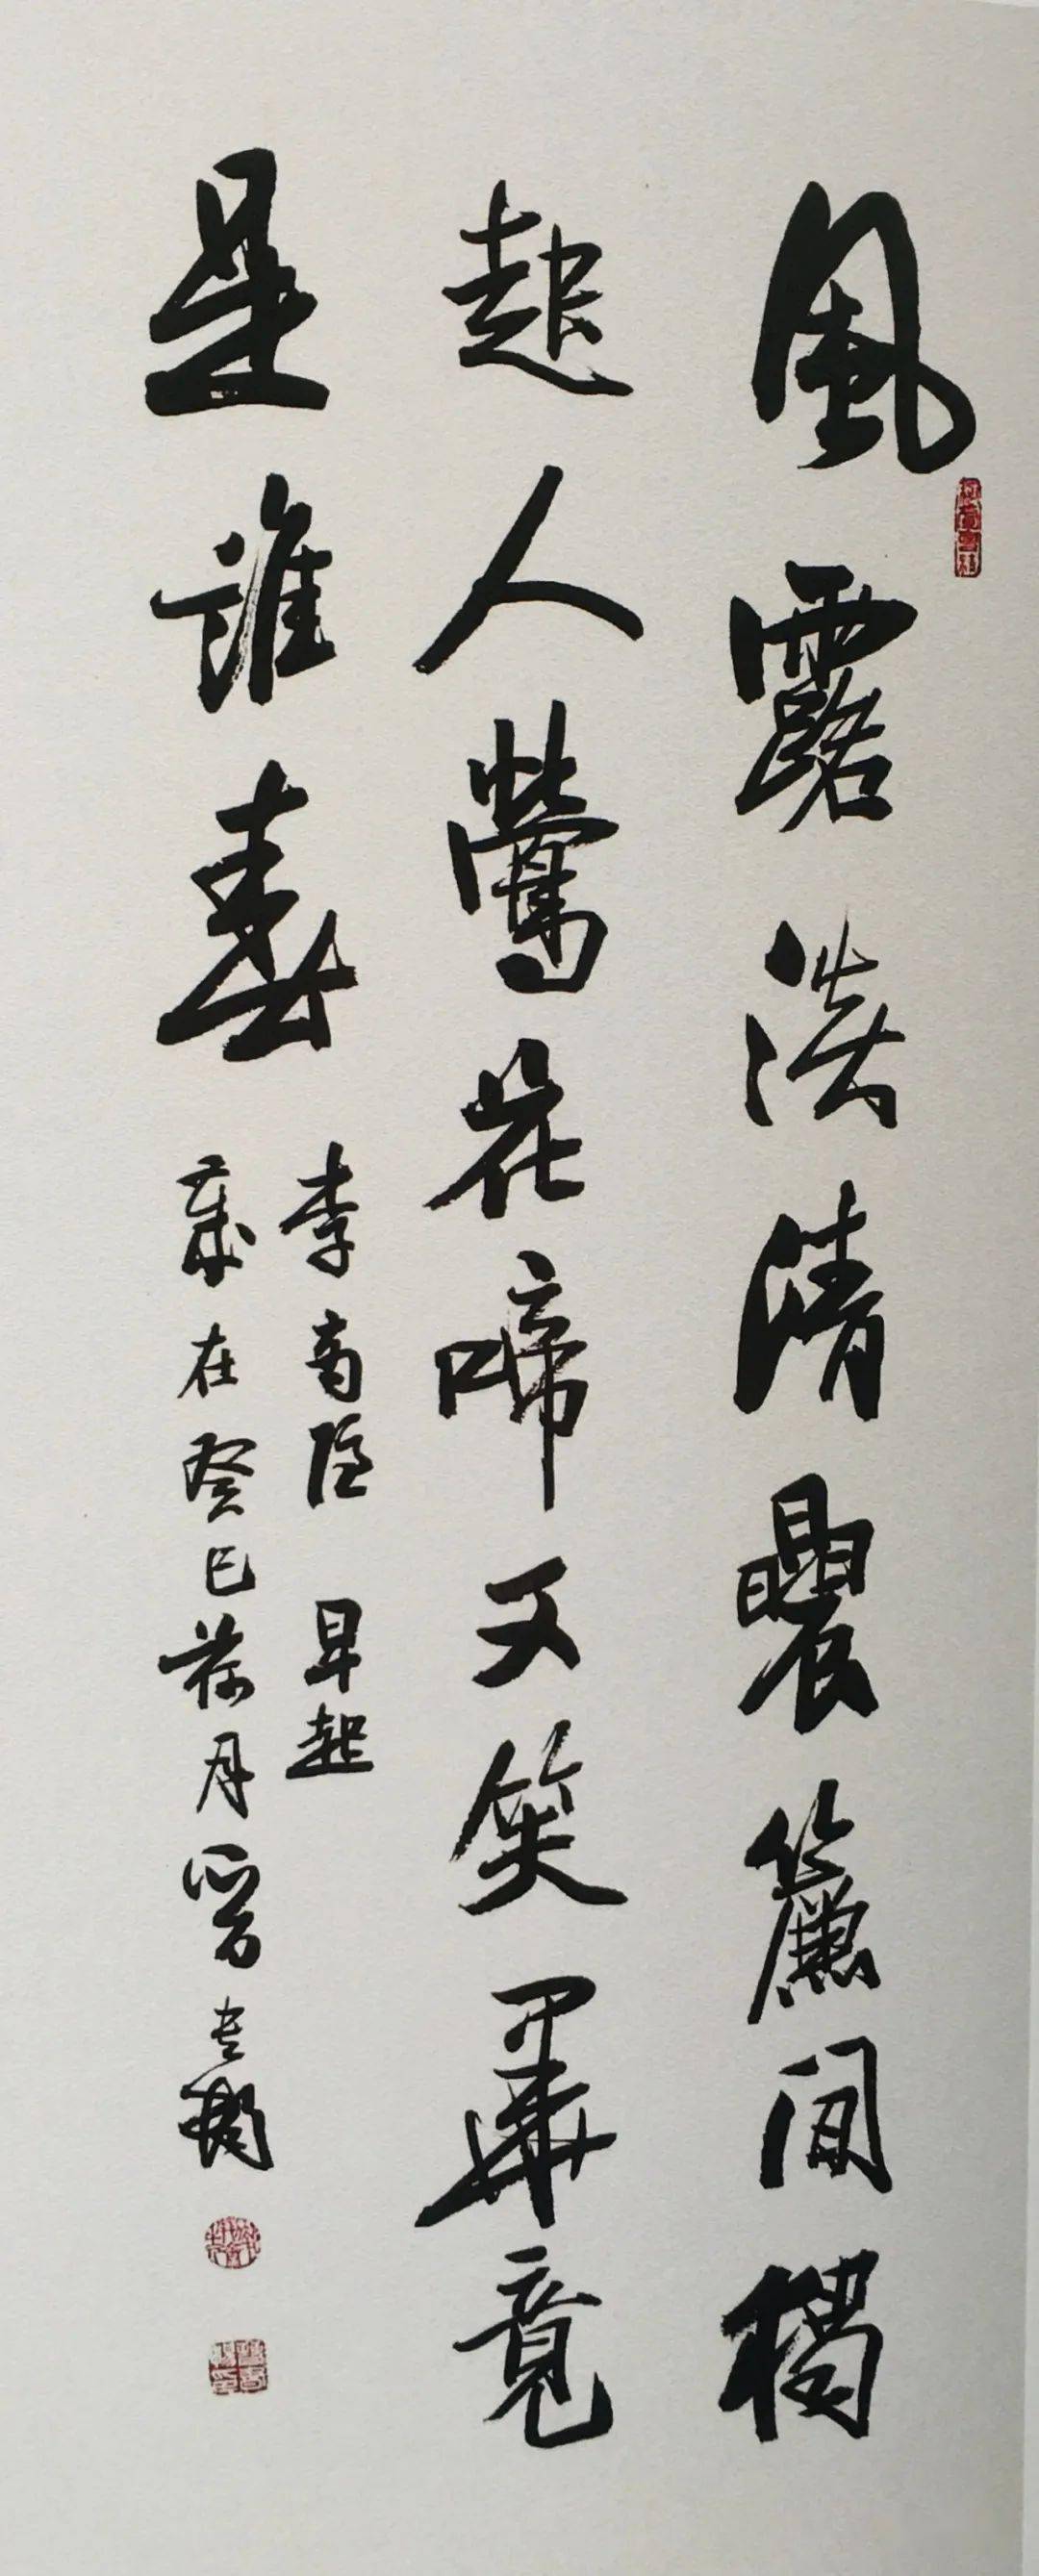 風露淡清曟簾間獨
起人鶯花啼又笑畢竟
是誰春
李商隱 早起
歲在癸巳荷月